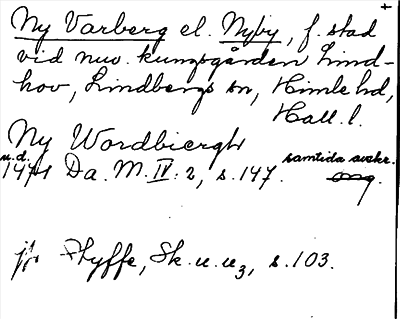 Ny Varberg el. Nyby, f. stad
vid nuv. kungsgården Lind-
hov, Lindbergs sn, Himle hd,
Hall. l.
Ny Wardbiergh
u.d.
147 Da. M. IV: 2, s. 147. samtida avskr.
jfr Styffe, Sk. u. u3, s. 103.